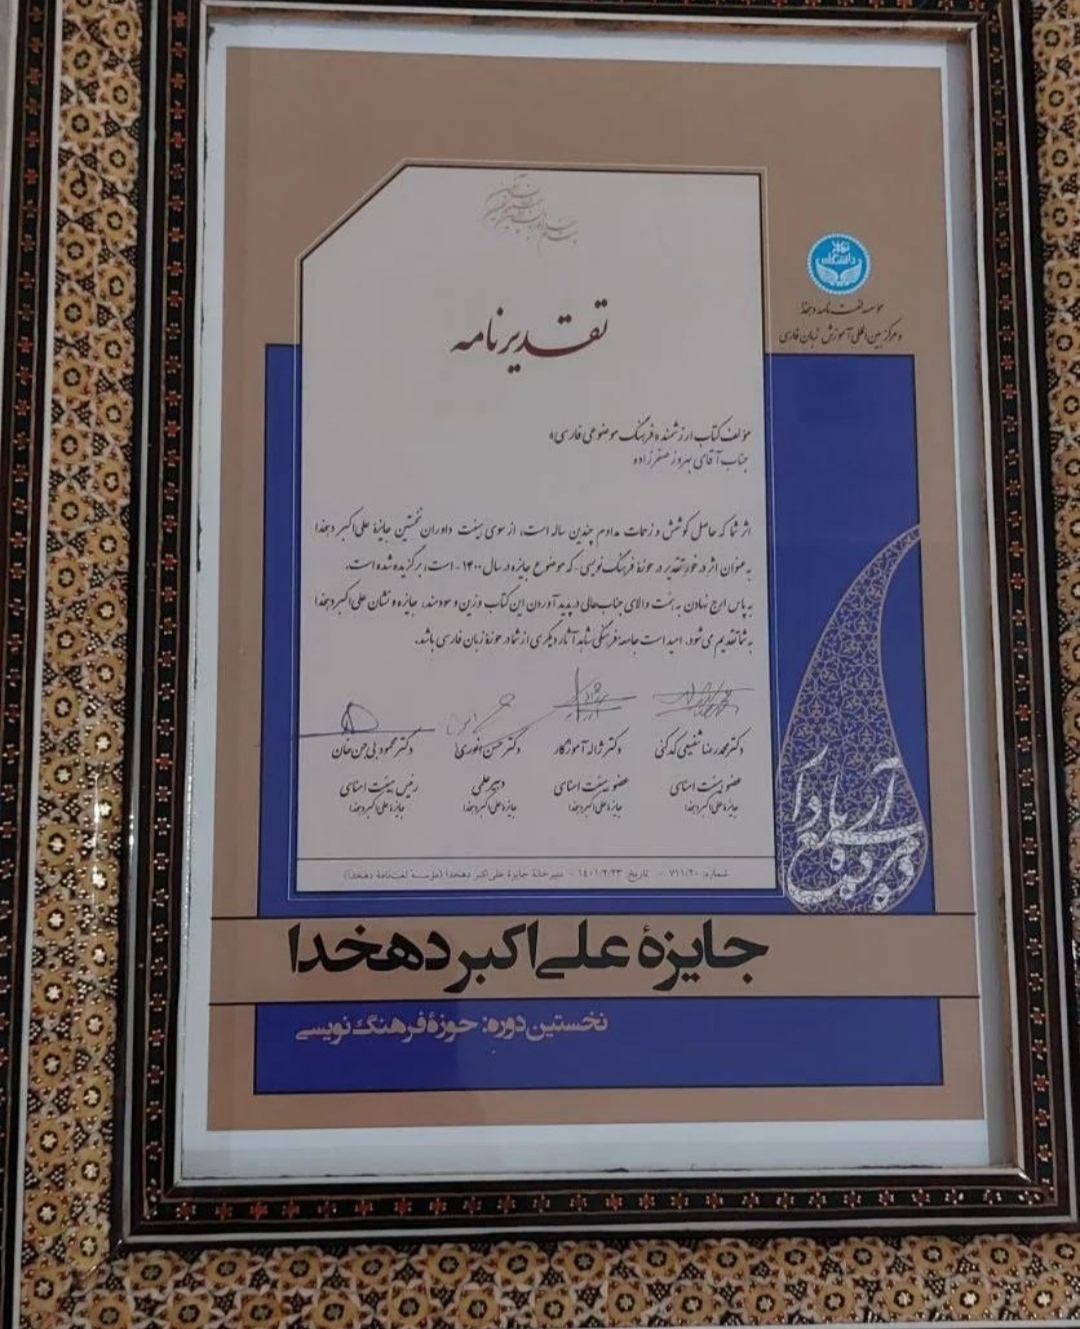 دانشگاه تهران
مؤسسه لغت‌نامه دهخدا
و مرکز بین‌المللی آموزش زبان فارسی
تقدیرنامه
مؤلف کتاب ارزشمند «فرهنگ موضوعی فارسی»
جناب آقای بهروز صفرزاده
اثر شما که حاصل کوشش و زحمات مداوم چندین ساله است، از سوی هیئت داوران نخستین جایزهٔ علی‌اکبر دهخدا
به عنوان اثر در خور تقدیر در حوزهٔ فرهنگ‌نویسی - که موضوع جایزه در سال ۱۴۰۰ - است، برگزیده شده است.
به پاس ارج نهادن به همت والای جناب‌عالی در پدید آوردن این کتاب وزین و سودمند، جایزه و نشان علی‌اکبر دهخدا
به شما تقدیم می‌شود. امید است جامعه فرهنگی شاهد آثار دیگری از شما در حوزهٔ زبان فارسی باشد.
دکتر محمدرضا شفیعی کدکنی دکتر ژاله آموزگار دکتر حسن انوری دکتر محمود بی‌جن‌خان
عضو هیئت امنای عضو هیئت امنای دبیر علمی رئیس هیئت امنای
جایزهٔ علی‌اکبر دهخدا جایزهٔ علی‌اکبر دهخدا جایزهٔ علی‌اکبر دهخدا جایزهٔ علی‌اکبر دهخدا
شماره: ۷۱۱/۲۰ - تاریخ: ۱۴۰۱/۲/۲۳ - دبیرخانهٔ جایزهٔ علی‌اکبر دهخدا (مؤسسهٔ لغت‌نامهٔ دهخدا)
جایزهٔ علی‌اکبر دهخدا
نخستین دوره: حوزهٔ فرهنگ‌نویسی